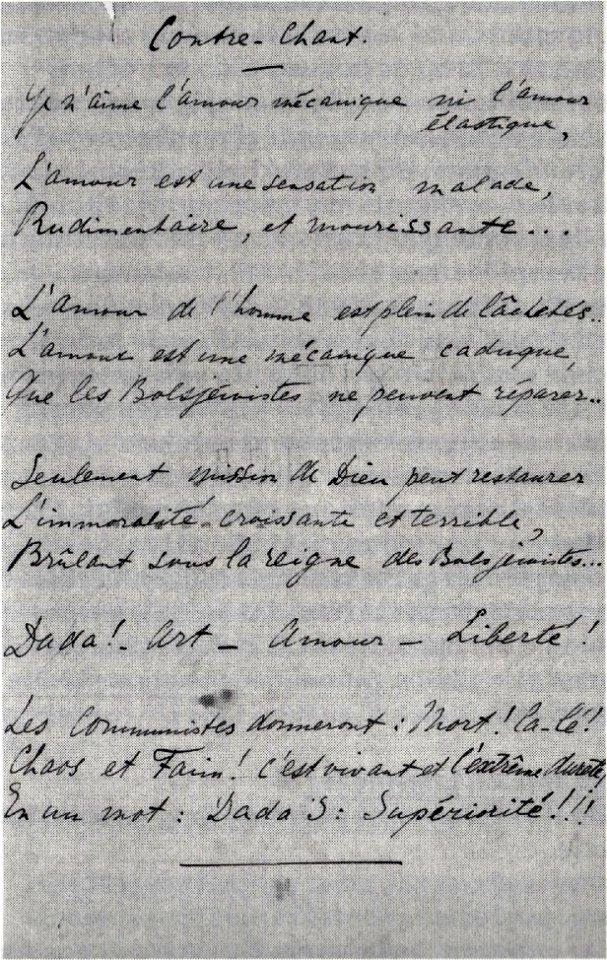 Contre-Chant.
Je n'aime l'amour mécanique ni l'amour
élastique,
L'amour est une sensation malade,
Rudimentaire, et mourissante...
L'amour de l'homme est plein de lâchetés..
L'amour est une mécanique caduque,
Que les Bolsjewistes ne peuvent réparer..
Seulement mission de Dieu peut restaurer
L'immoralité croissante et terrible,
Brûlant sous la reigne des Bolsjewistes...
Dada! - Art - Amour - Liberté!
Les Communistes donneront: Mort! la-lé!
Chaos et Faim! c'est vivant et l'extrême dureté,
En un mot: Dada S: Supériorité!!!